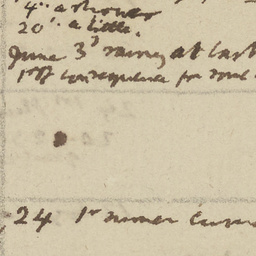 4. a shower
20. a little.
June 3d rainy at last
1st of consequence for
24 1st